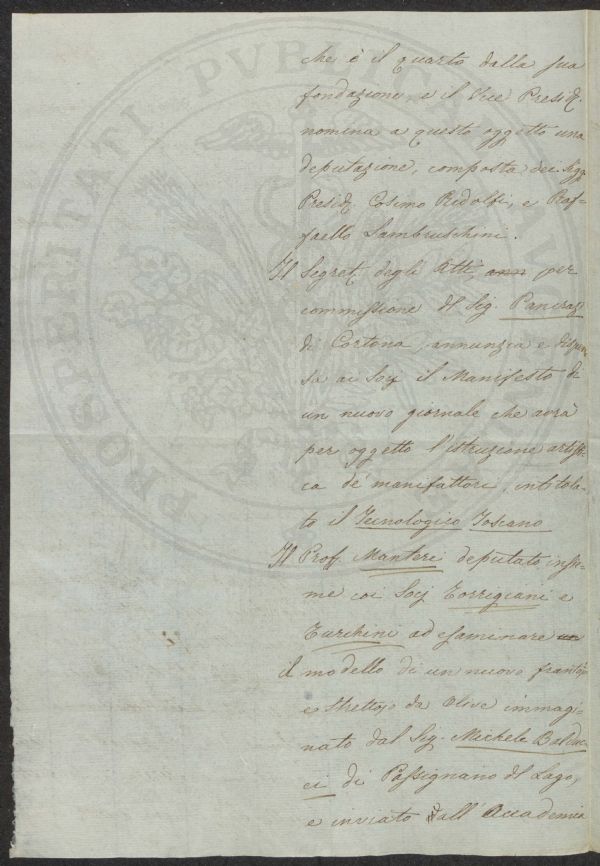 che è il quarto dalla sua
fondazione, e il Vice Presid.
nomina a questo oggetto una
deputazione, composta dei Sigg.
Presid. Cosimo Ridolfi, e Raf-
faello Lambruschini.
Il Segret. degli Atti, per
commissione del Sig. Pancrazj
di Cortona, annunzia e dispen
sa ai Socj il Manifesto di
un nuovo giornale che avrà
per oggetto l'istruzione artisti-
ca de' manifattori, intitola-
to il Tecnologico Toscano
Il Prof. Manteri deputato insie-
me coi Socj Torrigiani e
Turchini ad esaminare un
il modello di un nuovo frantojo
e strettojo da Olive immagi-
nato dal Sig. Michele Balduc-
ci di Passignano del Lago,
e inviato dall'Accademia
PROSPERITATI PUBLICAE